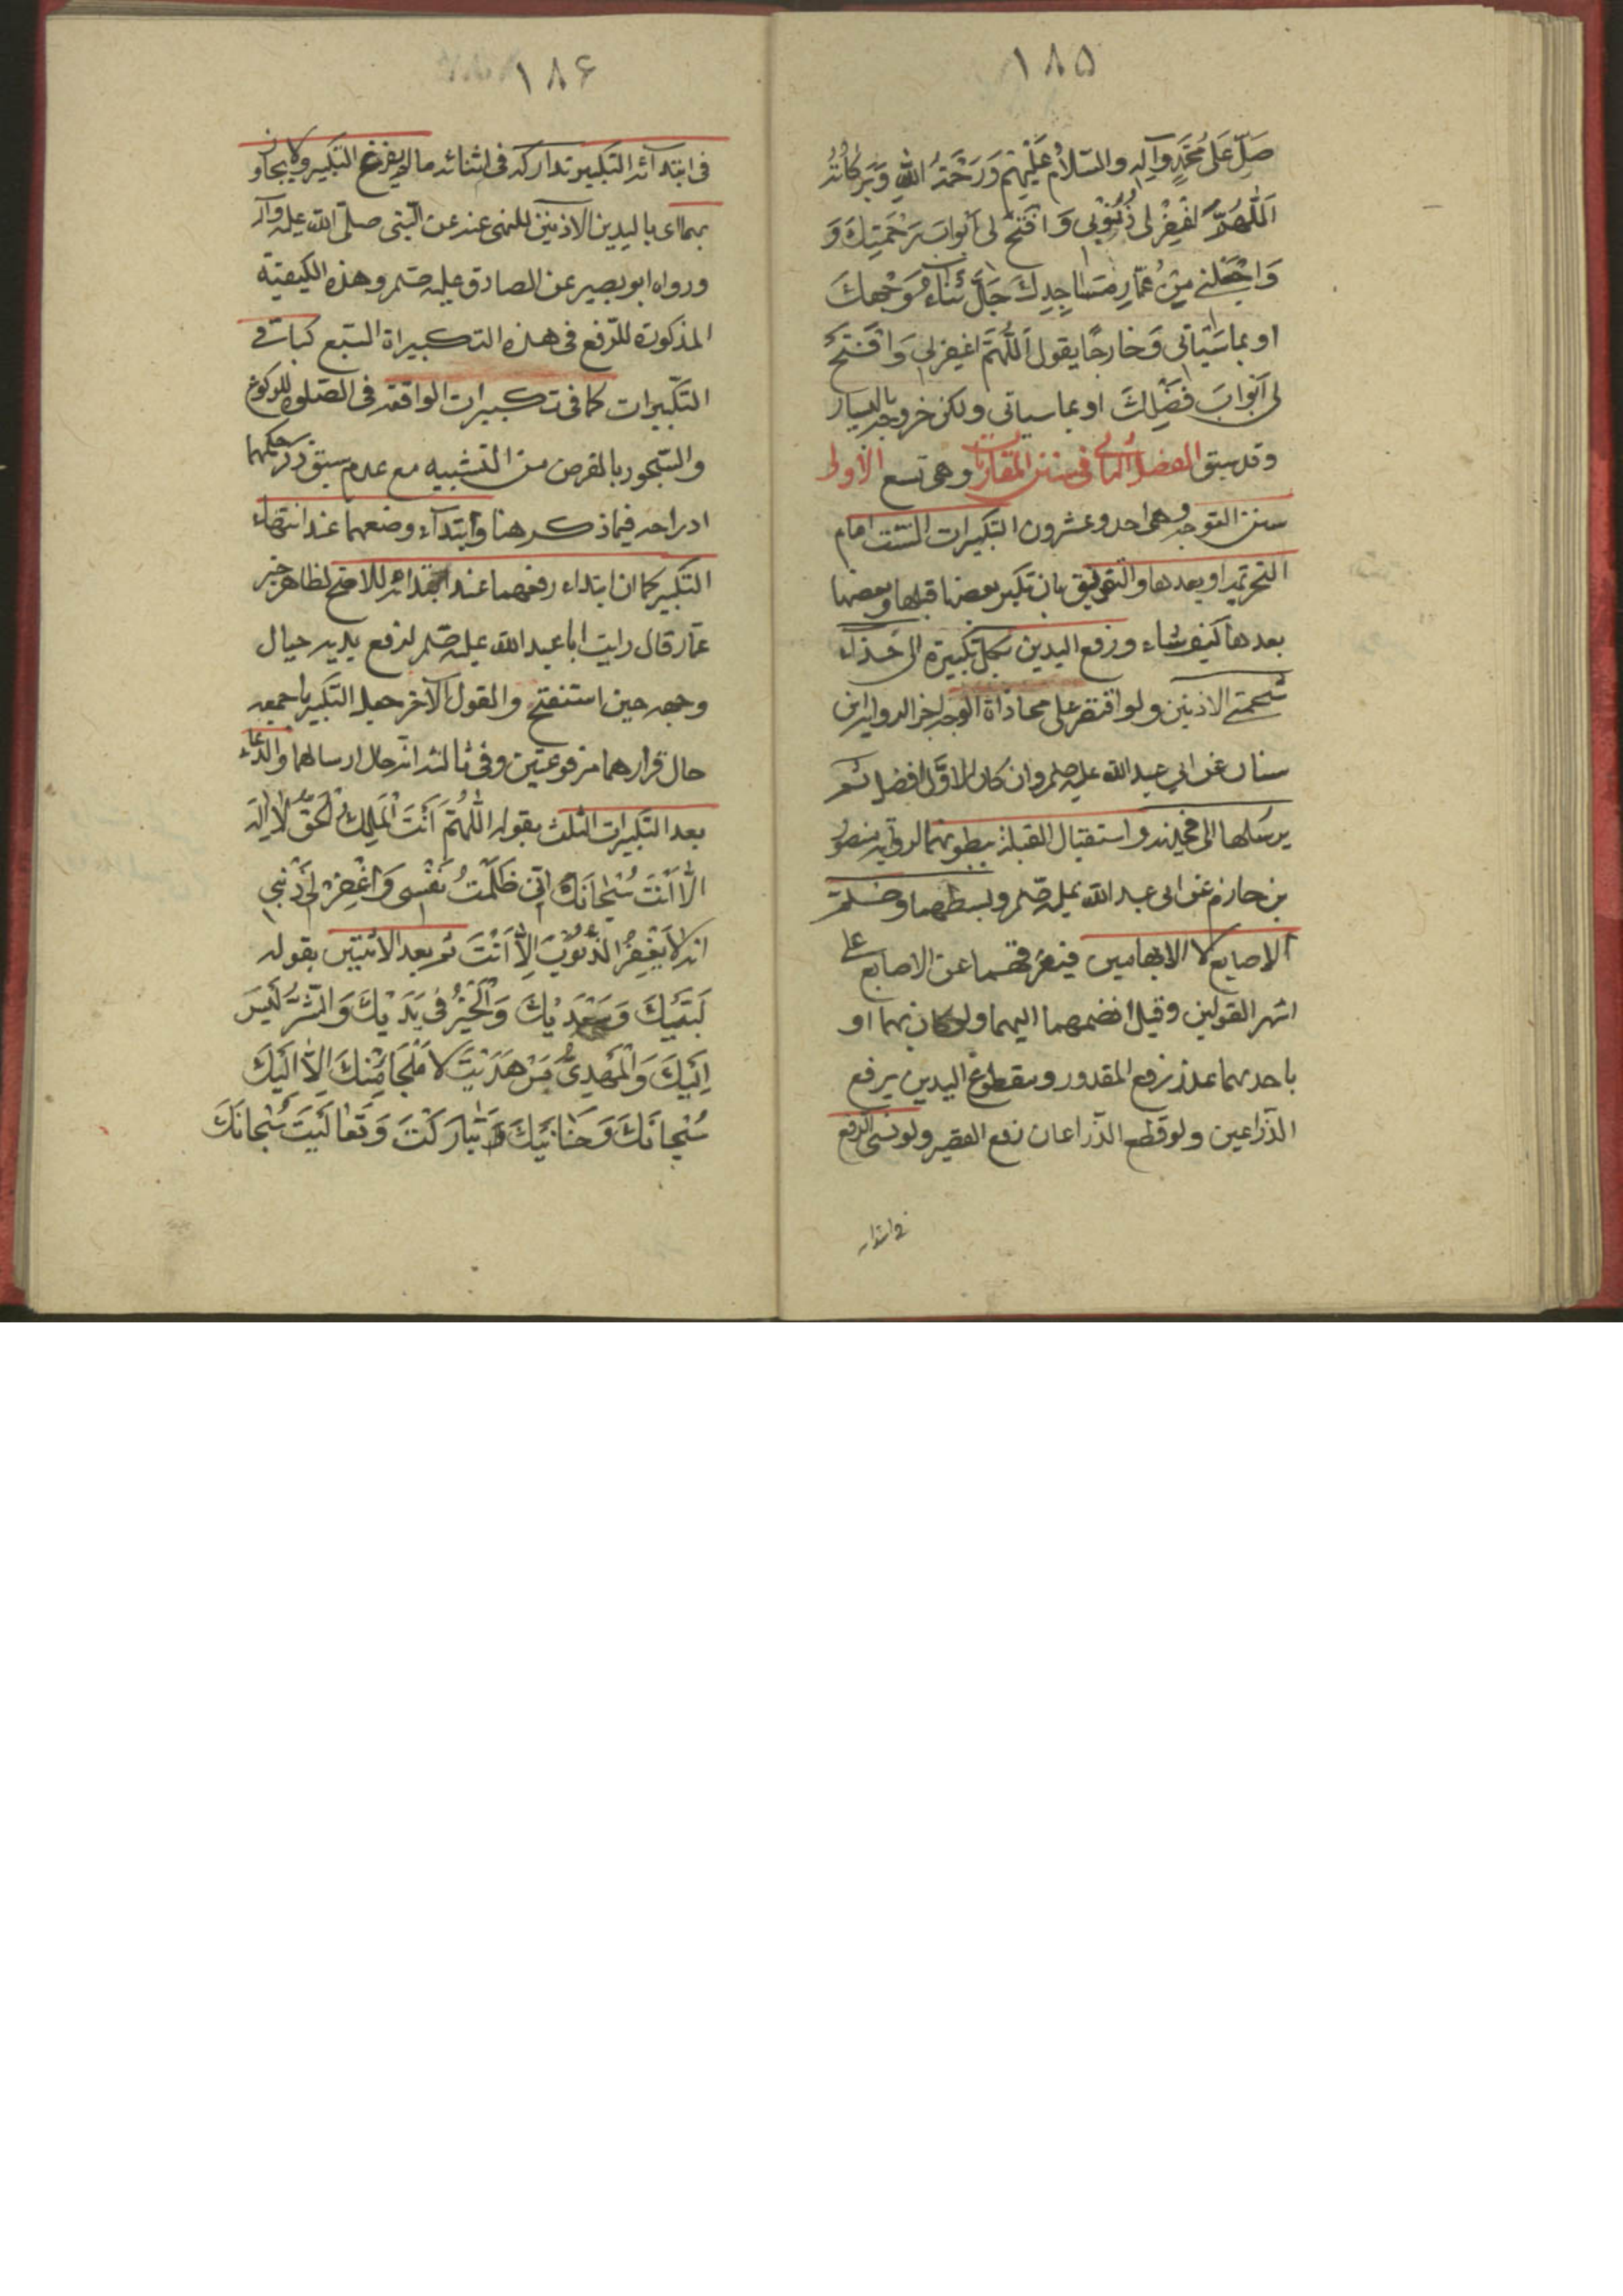 ١٨٥
صَلِّ عَلىٰ مُحَمَّدٍ وَآلِهِ والسَّلامُ عَلَيْهِمْ وَرَحْمَةُ اللهِ وَبَرَكاتُهُ
اَللّٰهُمَّ اغْفِرْ لى ذُنُوْبى وَافْتَحْ لى اَبْوابَ رَحْمَتِكَ وَ
وَاجْعَلْنى مِنْ عُمّارِ مَسَاجِدِكَ جَلَّ ثَناءُ وَجْهِكَ
او بما سَيَاتى وَخارجًا يقول اَللّٰهُمَّ اغفِرْلى وَافْتَحْ
لى اَبْوابَ فَضْلِكَ او بما سياتى ولكن خروجه باليسار
وقد سبق الفصل الثانى فى سنن المقارنات وهى تسع الأولى
سنن التوجه وهى احد وعشرون التكبيرات الست امام
التحريمة او بعدها والتفريق بان تكبر بعضها قبلها وبعضها
بعدها كيف شاء ورفع اليدين بكل تكبيرة الى حذاء
شحمتى الاذنين ولو اقتصر على محاذاة الوجه اجزا لرواية ابن
سنان عن ابى عبد الله عليه صلم وان كان الاوّل افضل ثم
يرسلها الى فخذيه واستقبال القبلة ببطونهما لرواية منصور
بن حازم عن ابى عبد الله عليه صلم وبسطهما وضم
الاصابع الا الابهامين فيفرقهما عن الاصابع على
اشهر القولين وقيل انضمهما اليهما ولو كان بهما او
باحدهما عذر رفع المقدور ومقطوع اليدين يرفع
الذّراعين ولو قطع الذّراعان رفع العضد ولو نسى الرفع
فى ابتداء
١٨۶
فى ابتدآئه التكبير تداركه فى اثنائه مالم يفرغ التكبير ولا يجاوز
بهما اى باليدين الاذنين للنهى عنه عن النّبى صلّى الله عليه وآله
ورواه ابو بصير عن الصادق عليه صلم وهذه الكيفيّة
المذكورة للرّفع فى هذه التكبيراة السّبع كباقى
التكبيرات كما فى تكبيرات الواقعة فى الصّلوة للركوع
والسّجود بالفرض من التشبيه مع عدم سبق ذكر حكمها
ادراجه فيما ذكر هنا وابتدآء وضعهما عند انتهاء
التكبير كما ان ابتداء رفعهما عند ابتدائه للاصح لظاهر خبر
عمّار قال رايت ابا عبد الله عليه صلم لرفع يديه حيال
وجهه حين استنفتح والمقول الآخر جعل التكبير باجمعه
حال قرارهما مرفوعتين وفى ثالث انّه حال ارسالهما والدّعاء
بعد التكبيرات الثلث بقوله اَللّٰهُمَّ اَنْتَ الْمَلِكُ الْحَقُّ لا اِلٰهَ
اِلاّ اَنْتَ سُبْحانَكَ اِنّى ظَلَمْتُ نَفْسى وَاغْفِرْ لى ذَنْبى
انه لا يَغْفِرُ الذُّنُوْبَ اِلاّ اَنْتَ ثم بعد الاثنتين بقوله
لَبَّيْكَ وَسَعْدَيْكَ وَالْخَيْرُ فى يَدَيْكَ وَالشَّرُّ لَيْسَ
اِلَيْكَ وَالْمَهْدِىُّ مَنْ هَدَيْتَ لا مَلْجَا مِنْكَ اِلاّ اِلَيْكَ
سُبْحانَكَ وَحَنانَيْكَ وَ تَبارَكْتَ وَتَعالَيْتَ سُبْحانَكَ